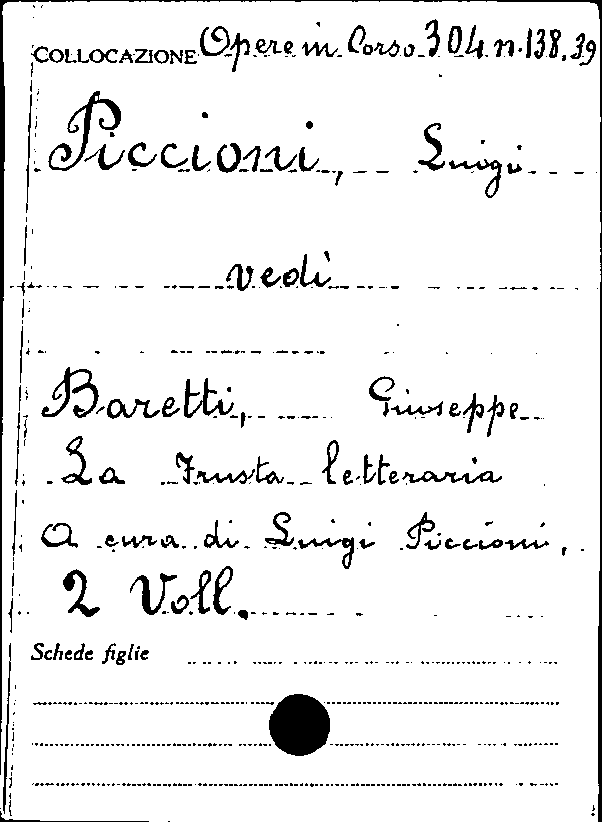 COLLOCAZIONE Opere in Corso 304 n. 138.39
Piccioni, Luigi
vedi
Baretti, Giuseppe
La Frusta letteraria
A cura di Luigi Piccioni.
2 Voll.
Schede figlie